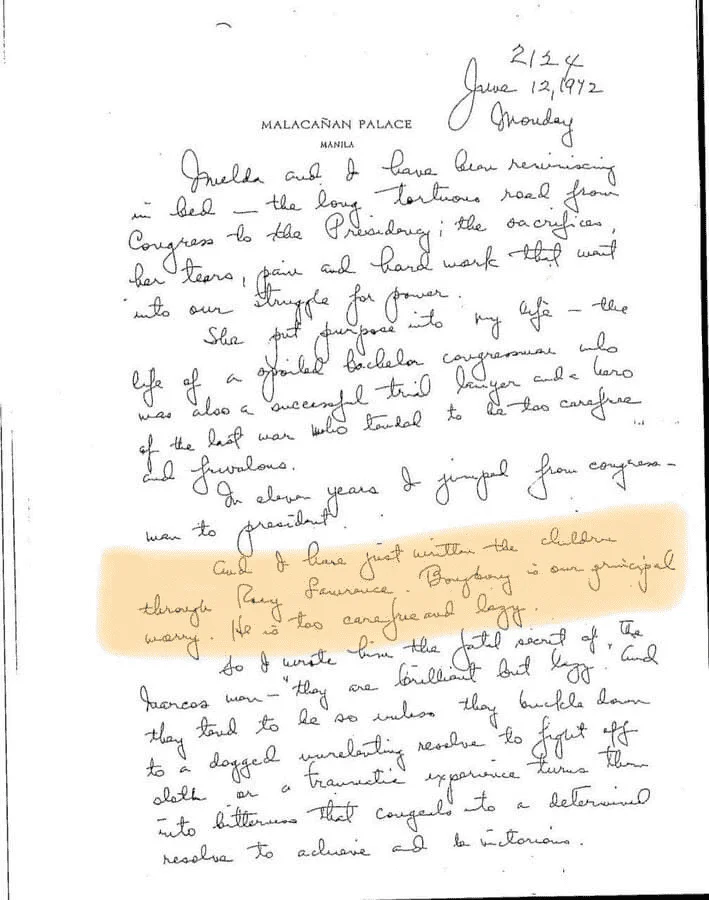 2124
June 12, 1972
Monday
MALACAÑAN PALACE
MANILA
Imelda and I have been reminiscing
in bed — the long tortuous road from
Congress to the Presidency; the sacrifices,
her tears, pain and hard work that went
into our struggle for power.
She put purpose into my life — the
life of a spoiled bachelor congressman who
was also a successful trial lawyer and a hero
of the last war who tended to be too carefree
and frivolous.
In eleven years I jumped from congress-
man to president.
And I have just written the children
through Rosy Lawrence. Bongbong is our principal
worry. He is too carefree and lazy.
So I wrote him the fatal secret of, The
Marcos men — "they are brilliant but lazy. And
they tend to be so unless they buckle down
to a dogged unrelenting resolve to fight off
sloth or a traumatic experience turns them
into bitterness that congeals into a determined
resolve to achieve and be victorious.